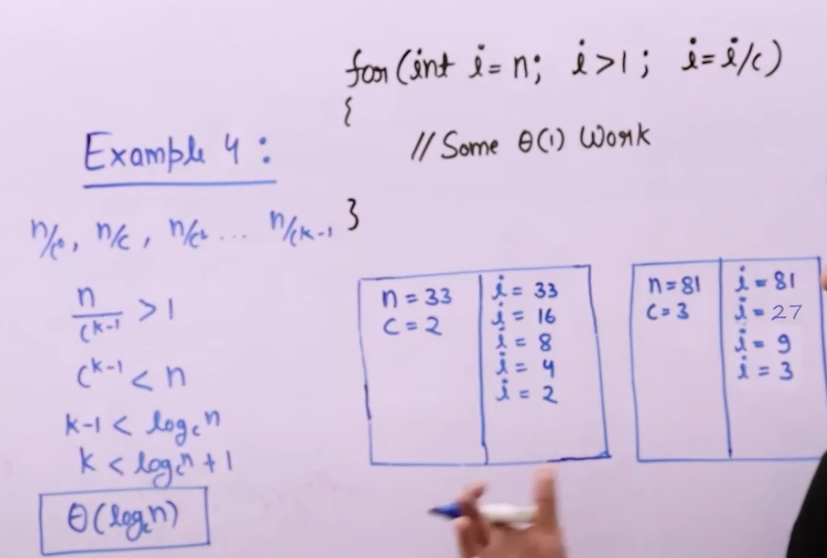 for(int i=n; i>1; i=i/c)
{
// Some θ(1) Work
}
Example 4:
n/c⁰, n/c, n/c² ... n/cᵏ⁻¹
n/cᵏ⁻¹ > 1
cᵏ⁻¹ < n
k-1 < log_c n
k < log_c n + 1
θ(log_c n)
n = 33
c = 2
i = 33
i = 16
i = 8
i = 4
i = 2
n = 81
c = 3
i = 81
i = 27
i = 9
i = 3